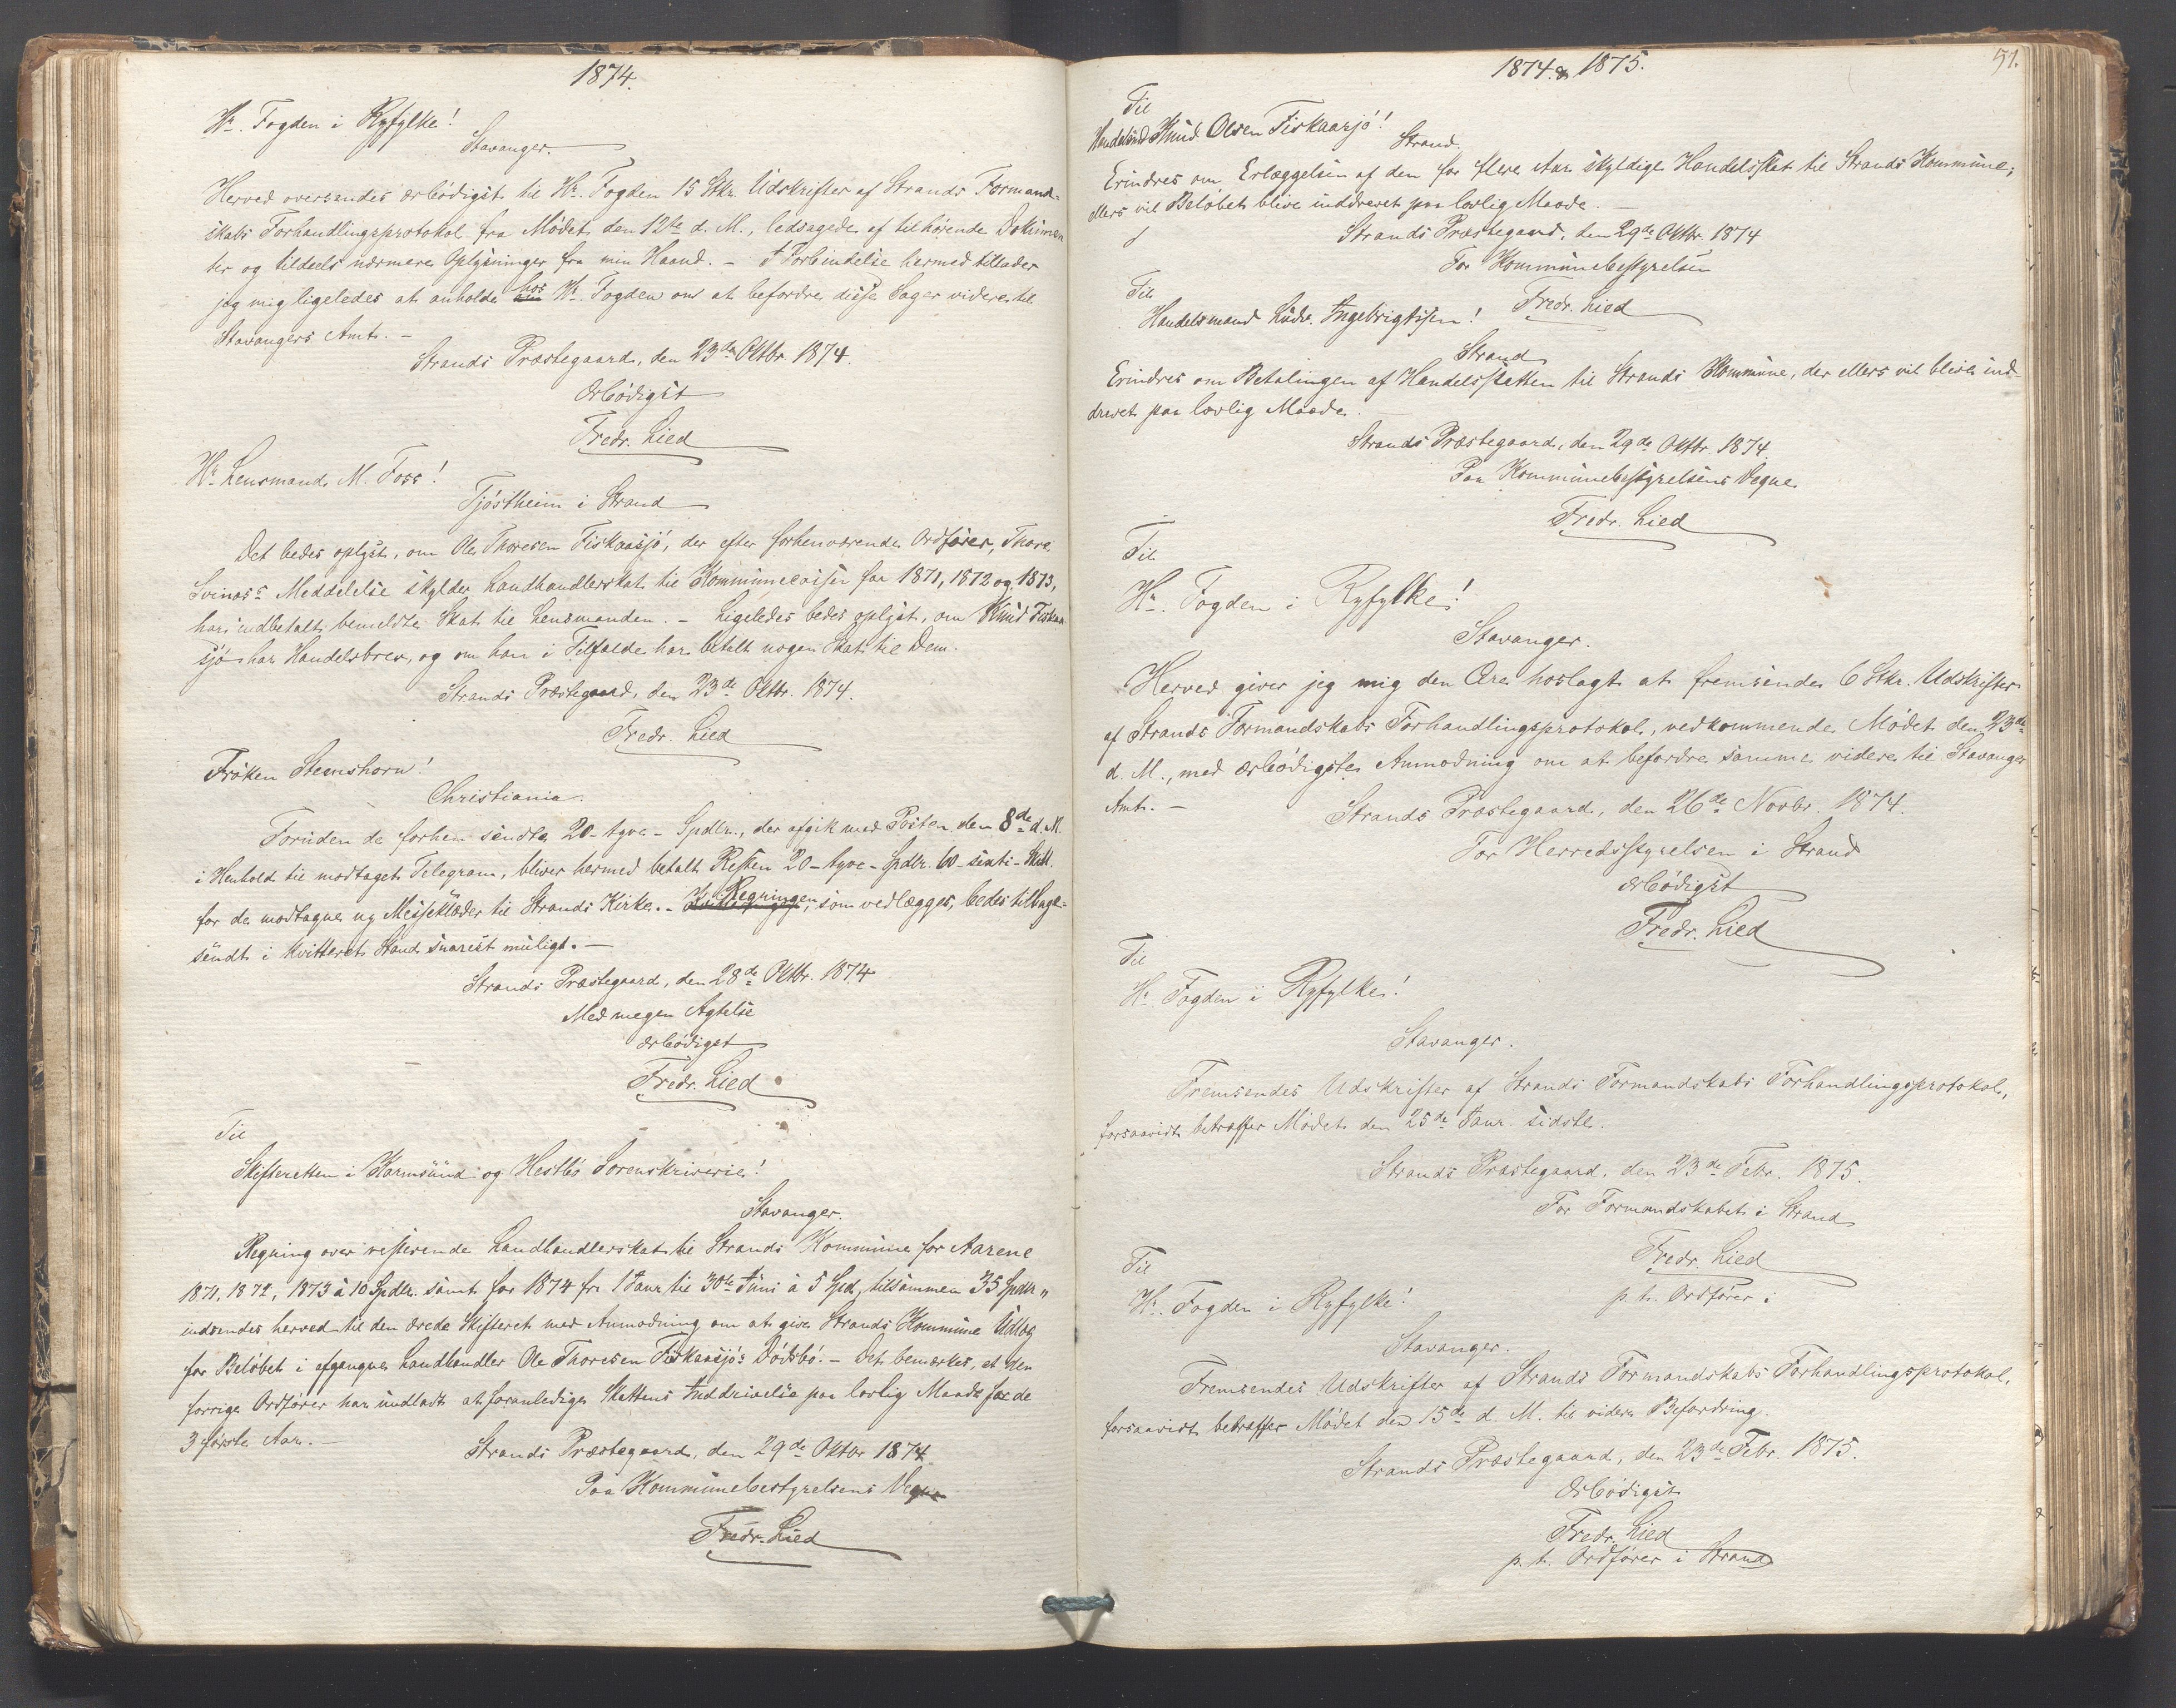 1874.
Hr. Fogden i Ryfylke!
Stavanger.
Herved oversendes ærbödigst til Hr. Fogden 15 Stkr. Udskrifter af Strands Formand-
skabs Forhandlingsprotokol fra Mödet den 12te d. M., ledsagede af tilhörende Dokumen
ter og tildeels nærmere Oplysninger fra min Haand. – I Forbindelse hermed tillader
jeg mig ligeledes at anholde hos Hr. Fogden om at befordre disse Sager videre til
Stavangers Amt. –
Strands Præstegaard, den 23de Oktbr. 1874.
Ærbödigst
Fredr. Lied
Hr. Lensmand M. Foss!
Tjöstheim i Strand
Det bedes oplyst, om Ole Thoresen Fiskaasjö, der efter forhenværende Ordförer, Thore
Svinæss Meddelelse skylder Landhandlerskat til Kommunecassen for 1871, 1872 og 1873,
har indbetalt bemeldte Skat til Lensmanden. – Ligeledes bedes oplyst, om Knud Fiskaa
sjö har Handelsbrev, og om han i Tilfælde har betalt nogen Skat til Dem.
Strands Præstegaard, den 23de Oktbr. 1874.
Fredr. Lied
Fröken Stenshorn!
Christiania.
Foruden de forhen sendte 20 – tyve – Spdlr., der afgik med Posten den 8de d. M.
i Henhold til modtaget Telegram, bliver hermed betalt Resten 20 – tyve – Spdlr. 60 – sexti – Skill.
for de modtagne ny Messeklæder til Strands Kirke. – Regningen, som vedlægges, bedes tilbage-
sendt i kvitteret Stand snarest muligt. –
Strands Præstegaard, den 28de Oktbr. 1874
Med megen Agtelse
ærbödigst
Fredr. Lied
Til
Skifteretten i Karmsund og Hesbö Sorenskriverie!
Stavanger.
Regning over resterende Landhandlerskat til Strands Kommune for Aarene
1871, 1872, 1873 à 10 Spdlr. samt for 1874 fra 1 Janr til 30te Juni à 5 Spd, tilsammen 35 Spdlr "
indsendes herved til den ærede Skifteret med Anmodning om at give Strands Kommune Udlæg
for Belöbet i afgangne Landhandler Ole Thoresen Fiskaasjö's Dödsbö. – Det bemærkes, at den
forrige Ordförer har undladt at foranledige Skattens Inddrivelse paa lovlig Maade for de
3 förste Aar. –
Strands Præstegaard, den 29de Oktbr 1874
Paa Kommunebestyrelsens Vegne
Fredr. Lied
1874. & 1875.
51.
Til
Handelsmd Knud Olsen Fiskaasjö!
Strand.
Erindres om Erlæggelsen af den for flere Aar skyldige Handelsskat til Strands Kommune;
ellers vil Belöbet blive inddrevet paa lovlig Maade. –
Strands Præstegaard, den 29de Oktbr. 1874
For Kommunebestyrelsen
Fredr. Lied
Til
Handelsmand Ludv. Ingebrigtsen!
Strand
Erindres om Betalingen af Handelsskatten til Strands Kommune, der ellers vil blive ind-
drevet paa lovlig Maade.
Strands Præstegaard, den 29de Oktbr. 1874.
Paa Kommunebestyrelsens Vegne
Fredr. Lied
Til
Hr. Fogden i Ryfylke!
Stavanger.
Herved giver jeg mig den Ære hoslagt at fremsende 6 Stkr. Udskrifter
af Strands Formandskabs Forhandlingsprotokol, vedkommende Mödet den 23de
d. M., med ærbödigste Anmodning om at befordre samme videre til Stavanger
Amt. –
Strands Præstegaard, den 26de Novbr. 1874.
For Herredsstyrelsen i Strand
ærbödigst
Fredr. Lied
Til
Hr. Fogden i Ryfylke!
Stavanger.
Fremsendes Udskrifter af Strands Formandskabs Forhandlingsprotokol,
forsaavidt betræffer Mödet den 25de Janr. sidstl.
Strands Præstegaard, den 23de Febr. 1875.
For Formandskabet i Strand
Fredr. Lied
p. t. Ordförer.
Til
Hr. Fogden i Ryfylke!
Stavanger.
Fremsendes Udskrifter af Strands Formandskabs Forhandlingsprotokol,
forsaavidt betræffer Mödet den 15de d. M. til videre Befordring.
Strands Præstegaard, den 23de Febr. 1875.
Ærbödigst
Fredr. Lied
p. t. Ordförer i Strand